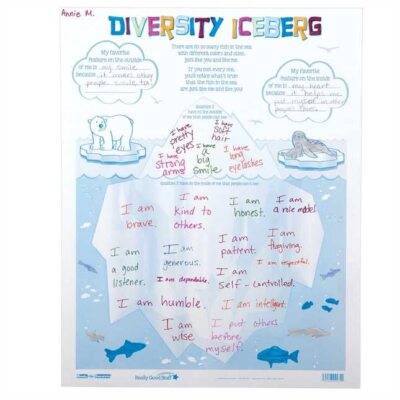 Annie M.
DIVERSITY ICEBERG
My favorite
feature on the outside
of me is my smile
because it makes other
people smile too!
There are so many fish in the sea
with different colors and sizes,
just like you and like me.
If you met every sea,
you'd notice what's true:
that the fish in the sea
are just like me and like you!
My favorite
feature on the inside
of me is my heart
because it helps me
put myself in other
people's shoes.
Qualities I
have on the outside
of me that people can see
I have
pretty
eyes
I have
soft
hair
I have
strong
arms
I have
a
big
smile
I have
long
eyelashes
Qualities I have on the inside of me that people can't see
I am
brave.
I am
kind to
others.
I am
honest.
I am
a role model.
I am
a good
listener.
I am
generous.
I am dependable.
I am
patient.
I am
forgiving.
I am respectful.
I am
self-controlled.
I am humble.
I am intelligent.
I am
wise
I put others
before
myself.
Really Good Stuff